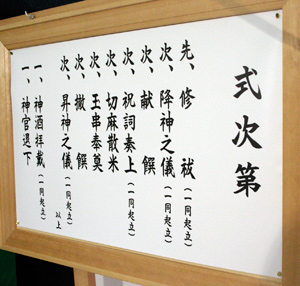 式次第
先、修祓(一同起立)
次、降神之儀(一同起立)
次、献饌
次、祝詞奏上(一同起立)
次、切麻散米
次、玉串奉奠
次、撤饌
次、昇神之儀(一同起立)
以上
一、神酒拝戴(一同起立)
一、神官退下